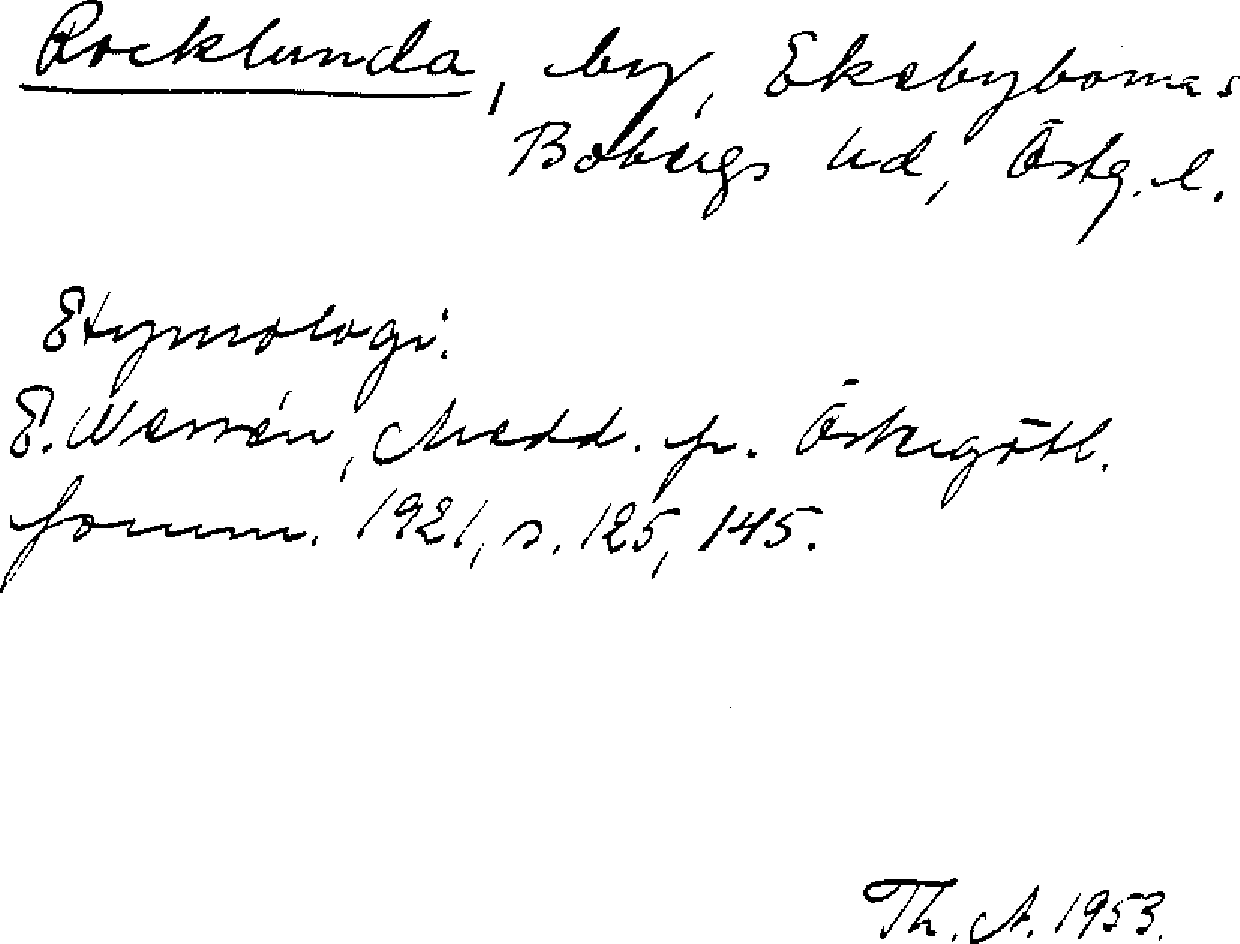 Rocklunda, by, Ekebyborna s
Bobergs hd, Östg. l.
Etymologi.
E. Wessén, Medd. fr. Östergötl.
fornm. 1921, s. 125, 145.
Th. A. 1953.